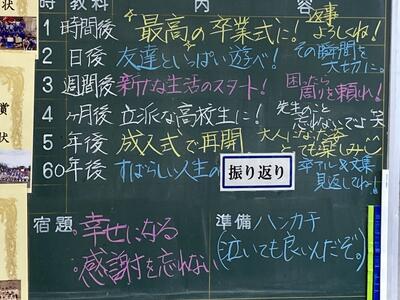 時 教科 内 容
1 時間後 最高の卒業式に! 返事よろしくね!
2 日後 友達といっぱい遊べ! その瞬間を大切に。
3 週間後 新たな生活のスタート! 困ったら周りを頼れ!
4 ヶ月後 立派な高校生に! 先生のこと忘れないでよ笑
5 年後 成人式で再開 大人になった姿とても楽しみ
60年後 すばらしい人生の 振り返り 卒アル&文集見返してね!
宿題 ・幸せになる
・感謝を忘れない
準備 ハンカチ
(泣いても良いんだぞ。)
賞
状
状